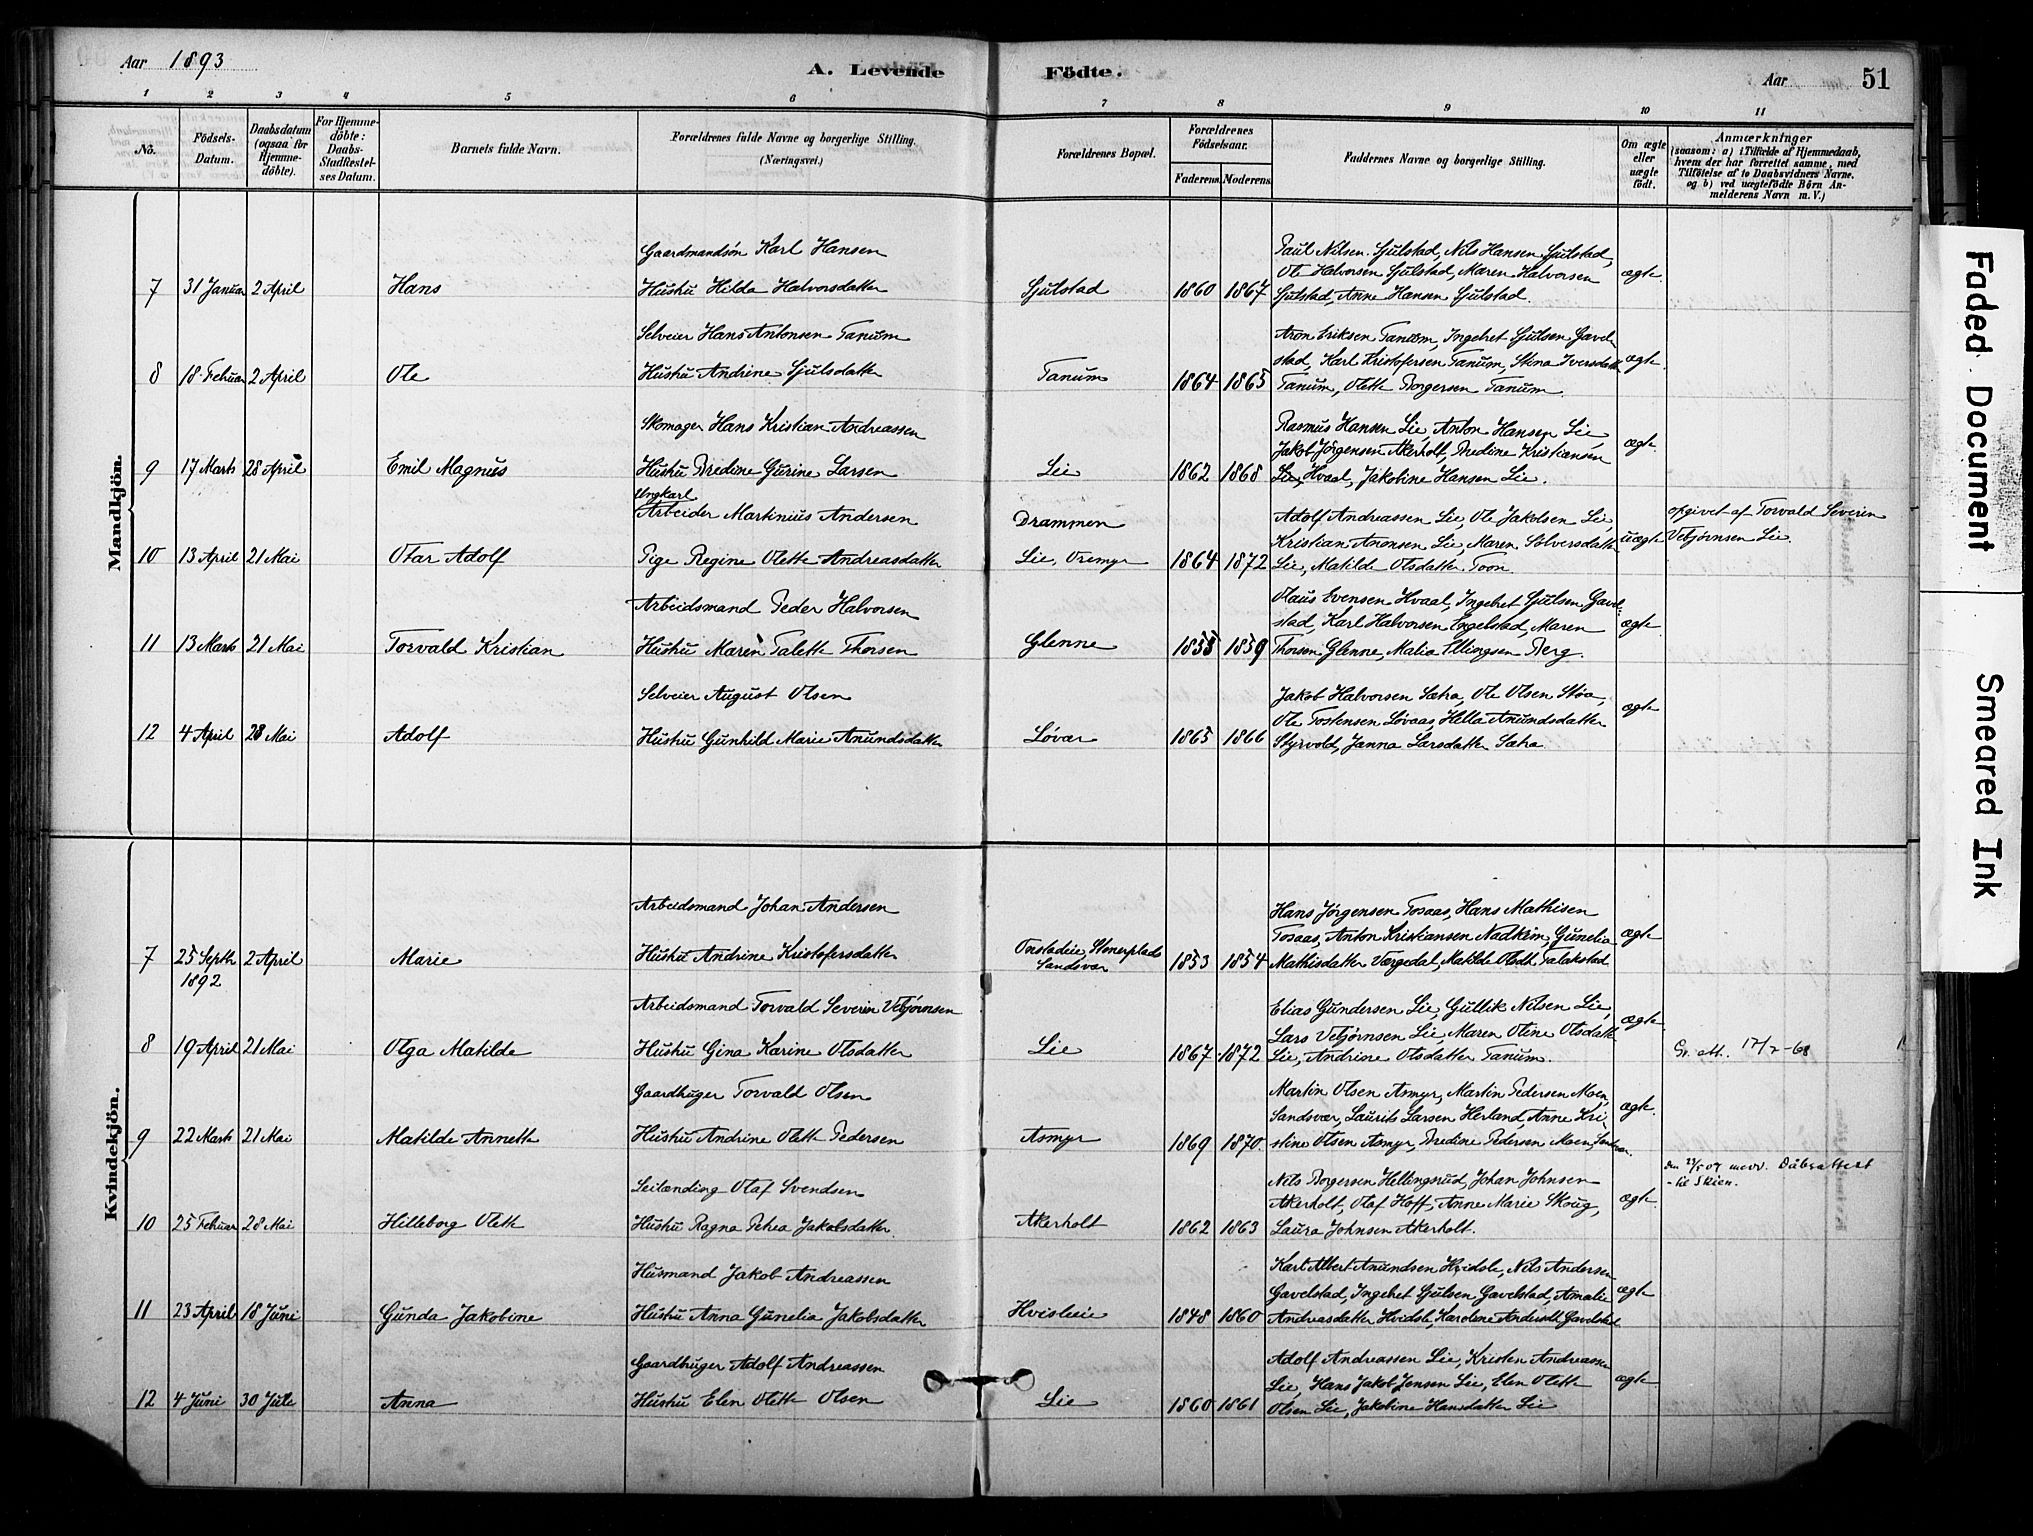 Aar 1893
A. Levende
Födte.
Aar
51
1 2 3 4 5 6 7 8 9 10 11
No.
Födsels-
Datum.
Daabsdatum
(ogsaa for
Hjemme-
döbte).
For Hjemme-
döbte:
Daabs-
Stadfæstel-
ses Datum.
Barnets fulde Navn.
Forældrenes fulde Navne og borgerlige Stilling.
(Næringsvei.)
Forældrenes Bopæl.
Forældrenes
Födselsaar.
Faderens.
Moderens.
Faddernes Navne og borgerlige Stilling.
Om ægte
eller
uægte
födt.
Anmærkninger
(saasom: a) i Tilfælde af Hjemmedaab,
hvem der har forrettet samme, med
Tilföielse af to Daabsvidners Navne.
og b) ved uægtefödte Börn An-
melderens Navn m. V.)
Mandkjön.
Gaardmandsøn Karl Hansen
7 31 Januar 2 April Hans Hustru Hilda Halvorsdatter Sjulstad 1860 1867
Paul Nilsen Sjulstad, Nils Hansen Sjulstad,
Ole Halvorsen Sjulstad, Maren Halvorsen
Sjulstad, Anne Hansen Sjulstad.
ægte
Selveier Hans Antonsen Tanum
8 18 Februar 2 April Ole Hustru Andrine Sjulsdatter Tanum 1864 1865
Aron Eriksen Tanum, Ingebret Sjulsen Gavel-
stad, Karl Kristofersen Tanum, Stina Iversdatter
Tanum, Olette Borgersen Tanum.
ægte
Skomager Hans Kristian Andreassen
9 17 Marts 28 April Emil Magnus Hustru Bredine Gurine Larsen Lie 1862 1868
Rasmus Hansen Lie, Anton Hansen Lie,
Jakob Jørgensen Akerholt, Bredine Kristiansen
Lie, Hvaal, Jakobine Hansen Lie.
ægte
Ungkarl
Arbeider Martinius Andersen Drammen
10 13 April 21 Mai Otar Adolf Pige Regine Olette Andreasdatter Lie, Oremyr 1864 1872
Adolf Andreassen Lie, Ole Jakobsen Lie,
Kristian Aronsen Lie, Maren Solversdatter
Lie, Matilde Olsdatter Toon
uægte
opgivet af Torvald Severin
Vebjørnsen Lie.
Arbeidsmand Peder Halvorsen
11 13 Marts 21 Mai Torvald Kristian Hustru Maren Talette Thorsen Glenne 1855 1859
Olaus Evensen Hvaal, Ingebret Sjulsen Gavel-
stad, Karl Halvorsen Engelstad, Maren
Thorsen Glenne, Malia Ellingsen Berg.
ægte
Selveier August Olsen
12 4 April 28 Mai Adolf Hustru Gunhild Marie Anundsdatter Løvar 1865 1866
Jakob Halvorsen Sætra, Ole Olsen Støa,
Ole Tostensen Løvaas, Hella Anundsdatter
Styrvold, Janna Larsdatter Sætra
ægte
Kvindekjön.
Arbeidsmand Johan Andersen
7 25 Septb 2 April Marie Hustru Andrine Kristofersdatter
1892
Sandsvær 1853 1854
Hans Jørgensen Tosaas, Hans Mathisen
Tosaas, Anton Kristiansen Nadkim, Gunelia
Mathisdatter Værgedal, Matilde Olsdt. Falakstad
ægte
Arbeidsmand Torvald Severin Vebjørnsen
8 19 April 21 Mai Olga Matilde Hustru Gina Karine Olsdatter Lie 1867 1872
Elias Gundersen Lie, Gullik Nilsen Lie,
Lars Vebjørnsen Lie, Maren Oline Olsdatter
Lie, Andrine Olsdatter Tanum.
ægte
att. 17/7-68
Gaardbruger Torvald Olsen
9 22 Marts 21 Mai Matilde Annette Hustru Andrine Olette Pedersen Asmyr 1869 1870
Martin Olsen Asmyr, Martin Pedersen Moen,
Sandsvær, Laurits Larsen Herland, Anne Kri-
stine Olsen Asmyr, Bredine Pedersen Moen, Sandsvær.
ægte
Dåbsattest
til Skien.
Leilænding Olaf Svendsen
10 25 Februar 28 Mai Hilleborg Olette Hustru Ragna Petrea Jakobsdatter Akerholt 1862 1863
Nils Borgersen Hellingsrud, Johan Johnsen
Akerholt, Olaf Hoff, Anne Marie Skoug,
Laura Johnsen Akerholt.
ægte
Husmand Jakob Andreassen
11 23 April 18 Juni Gunda Jakobine Hustru Anna Gunelia Jakobsdatter Hvisleie 1848 1860
Karl Albert Anundsen Hvidsle, Nils Andersen
Gavelstad, Ingebret Sjulsen Gavelstad, Amalie
Andreasdatter Hvidsle, Karoline Andersdt. Gavelstad
ægte
Gaardbruger Adolf Andreassen
12 4 Juni 30 Juli Anna Hustru Elen Olette Olsen Lie 1860 1861
Adolf Andreassen Lie, Kristen Andreassen
Lie, Hans Jakob Jensen Lie, Elen Olette
Olsen Lie, Jakobine Hansdatter Lie
ægte
Faded Document
Smeared Ink